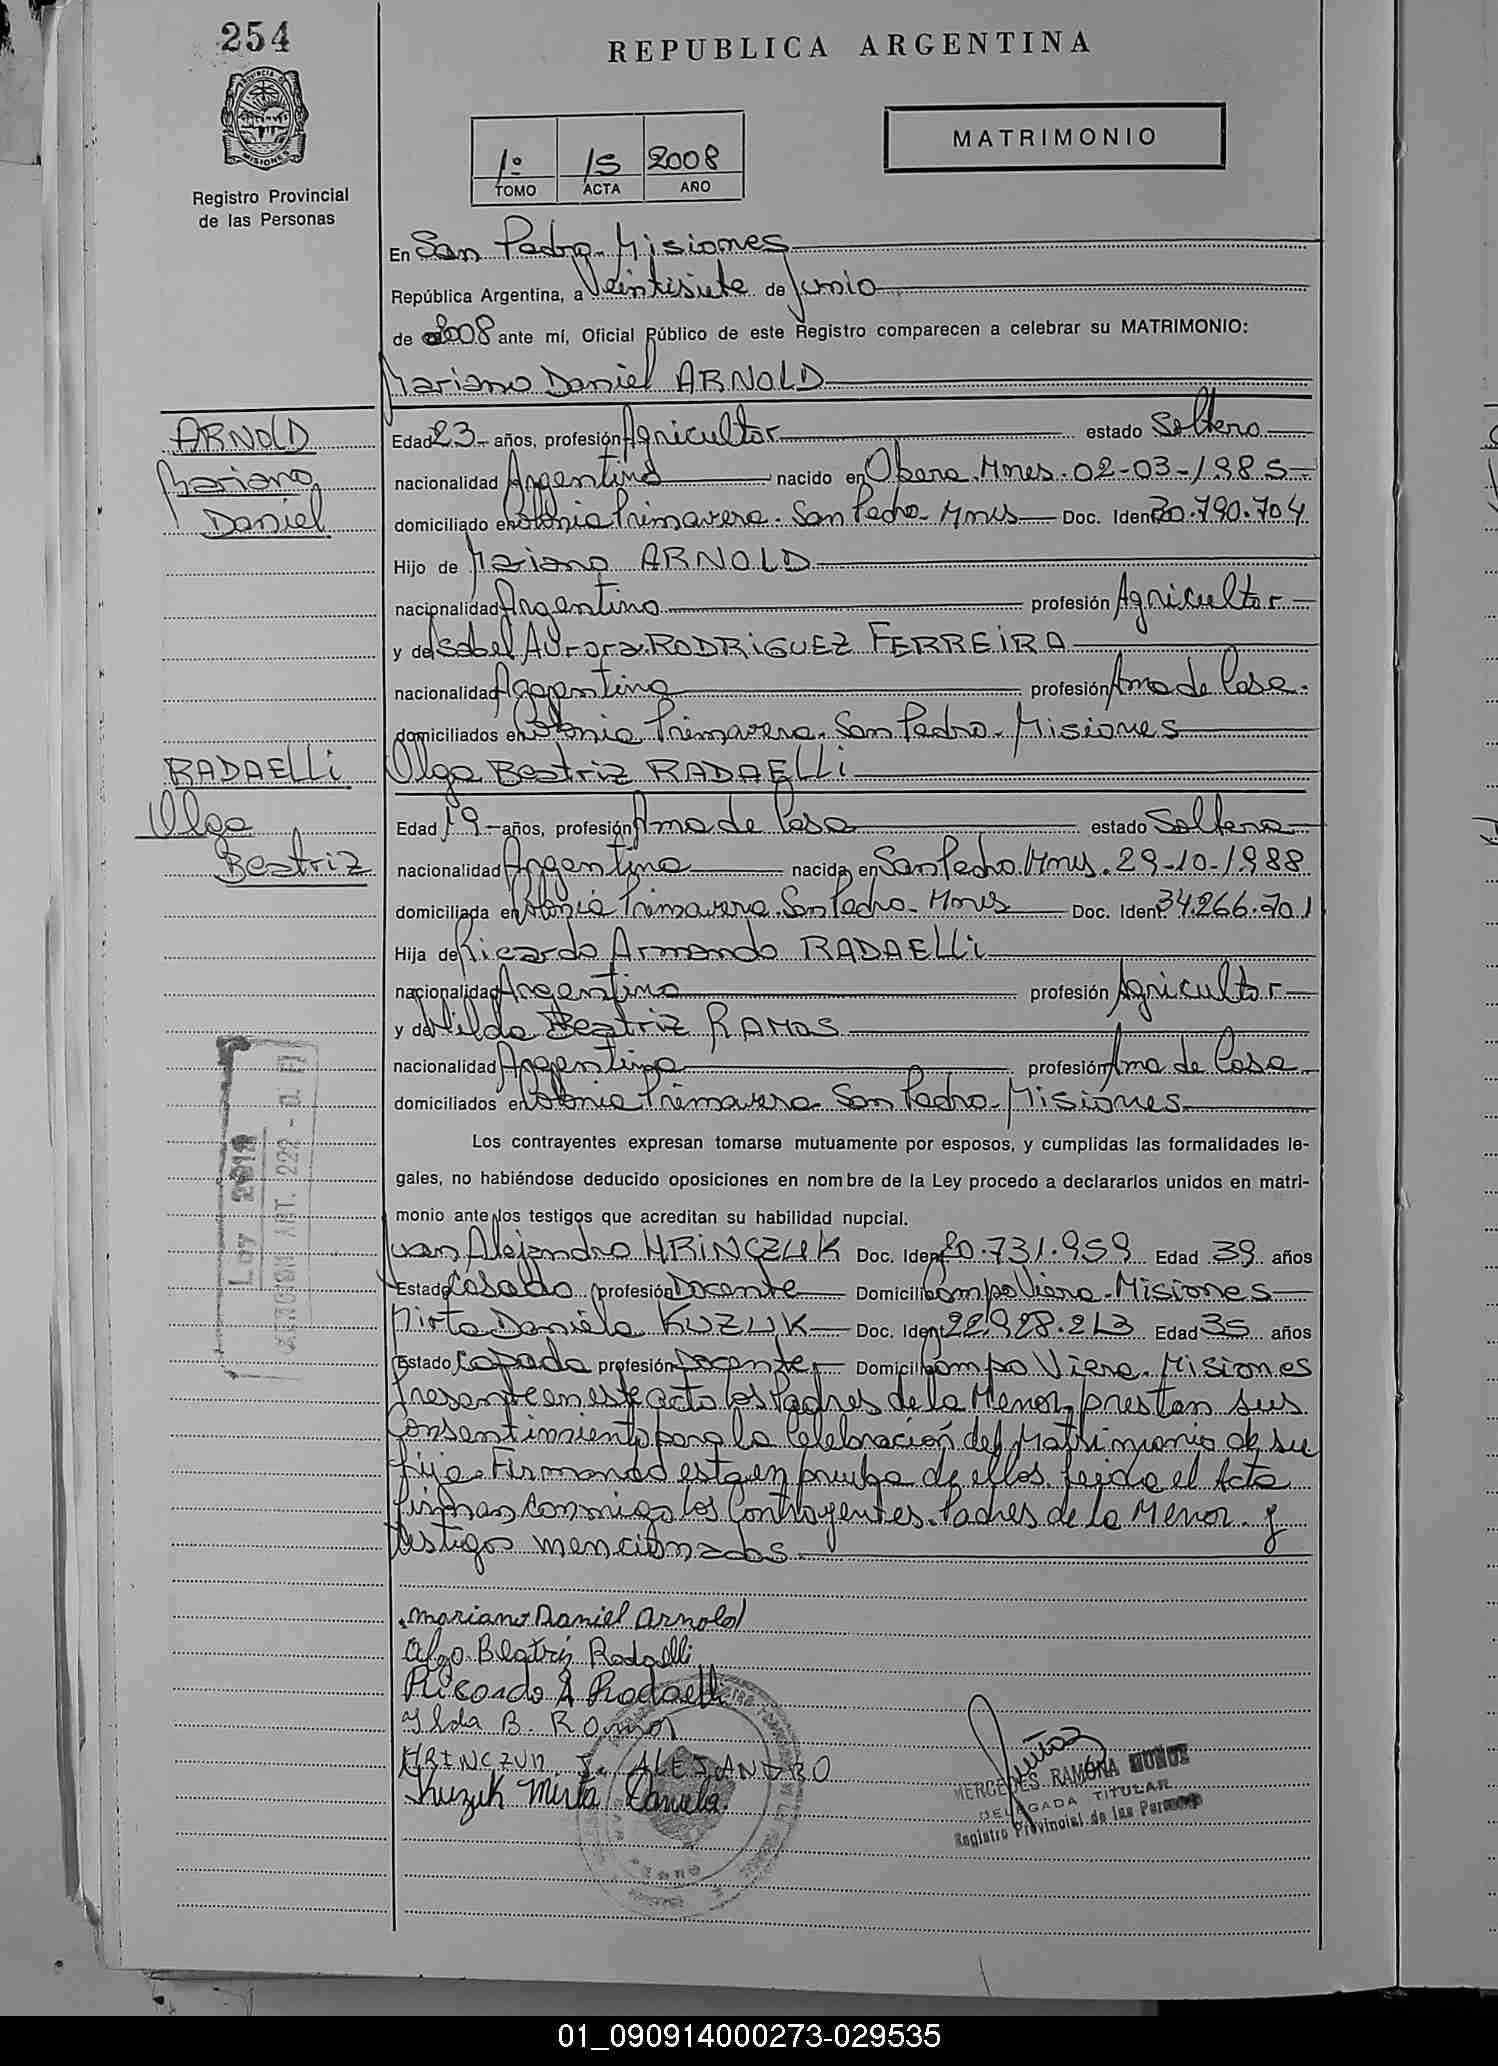 254
REPUBLICA ARGENTINA
PROVINCIA DE
MISIONES
Registro Provincial
de las Personas
1º 15 2008
TOMO ACTA AÑO
MATRIMONIO
En San Pedro. Misiones
República Argentina, a Veintisiete de Junio
de 2008 ante mí, Oficial Público de este Registro comparecen a celebrar su MATRIMONIO:
Mariano Daniel ARNOLD
ARNOLD
Mariano
Daniel
Edad 23 años, profesión Agricultor estado Soltero
nacionalidad Argentino nacido en Obera. Mnes. 02-03-1985
domiciliado en Colonia Primavera. San Pedro. Mnes Doc. Ident. 30.790.704
Hijo de Mariano ARNOLD
nacionalidad Argentino profesión Agricultor
y de Isabel Aurora RODRIGUEZ FERREIRA
nacionalidad Argentina profesión Ama de Casa
domiciliados en Colonia Primavera. San Pedro. Misiones
RADAELLi
Olga
Beatriz
Olga Beatriz RADAELLi
Edad 19 años, profesión Ama de Casa estado Soltera
nacionalidad Argentina nacida en San Pedro. Mnes. 29-10-1988
domiciliada en Colonia Primavera. San Pedro. Mnes Doc. Ident. 34.266.701
Hija de Ricardo Armando RADAELLi
nacionalidad Argentino profesión Agricultor
y de Hilda Beatriz RAMOS
nacionalidad Argentina profesión Ama de Casa
domiciliados en Colonia Primavera San Pedro. Misiones
Los contrayentes expresan tomarse mutuamente por esposos, y cumplidas las formalidades le-
gales, no habiéndose deducido oposiciones en nombre de la Ley procedo a declararlos unidos en matri-
monio ante los testigos que acreditan su habilidad nupcial.
Juan Alejandro HRINCZUK Doc. Ident. 20.731.959 Edad 39 años
Estado Casado profesión Docente Domicilio Campo Viera. Misiones
Mirta Daniela KUZUK Doc. Ident. 22.928.213 Edad 35 años
Estado Casada profesión Docente Domicilio Campo Viera. Misiones
Presente en este acto los Padres de la Menor, prestan sus
Consentimiento para la Celebración del Matrimonio de su
hija. Firmando esta en prueba de ellos. Leida el Acta
firman conmigo los Contrayentes. Padres de la Menor. y
testigos mencionados
Ley
ART. 222
Mariano Daniel Arnold
Olga Beatris Radaelli
Ricardo A Radaelli
Ilda B. Ramos
HRINCZUK J. ALEJANDRO
Kuzuk Mirta Daniela.
Muñoz
MERCEDES RAMONA MUÑOZ
DELEGADA TITULAR
Registro Provincial de las Personas
01_090914000273-029535